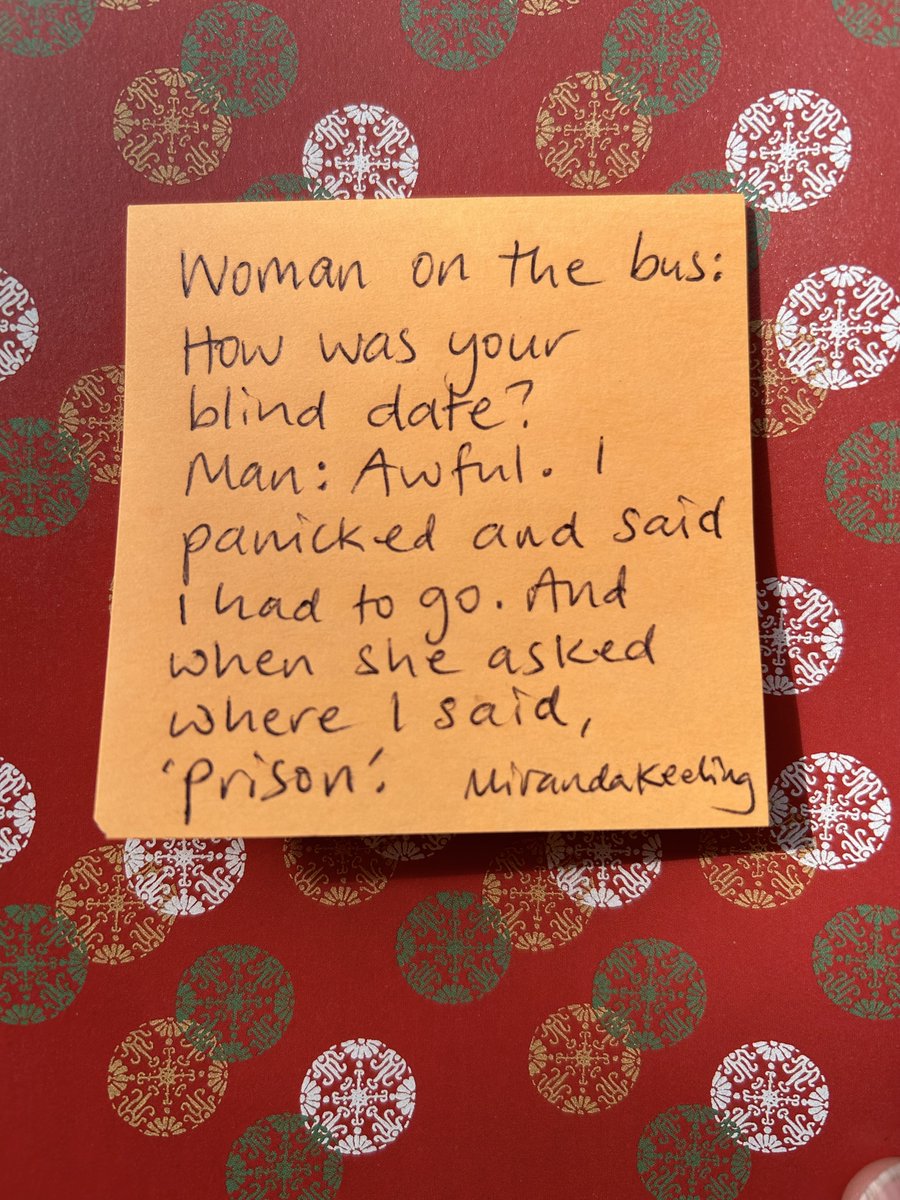 Woman on the bus:
How was your
blind date?
Man: Awful. I
panicked and said
I had to go. And
when she asked
where I said,
'Prison'.
MirandaKeeling